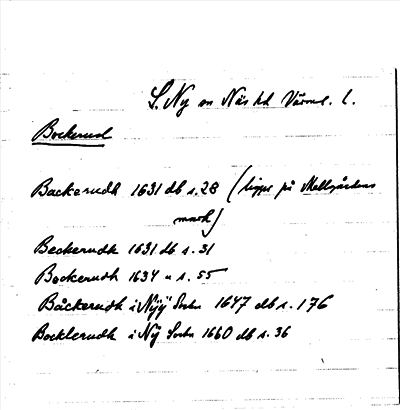 S. Ny sn Näs hd Värml. l.
Bockerud
Backerudh 1631 db s. 28 (ligger på Mellgårdens
mark)
Beckerudh 1631 db s. 31
Bockerudh 1634 " s. 55
Båckerudh i Nÿÿ Sochn 1647 db s. 176
Bocklerudh i Nÿ Sochn 1660 db s. 36